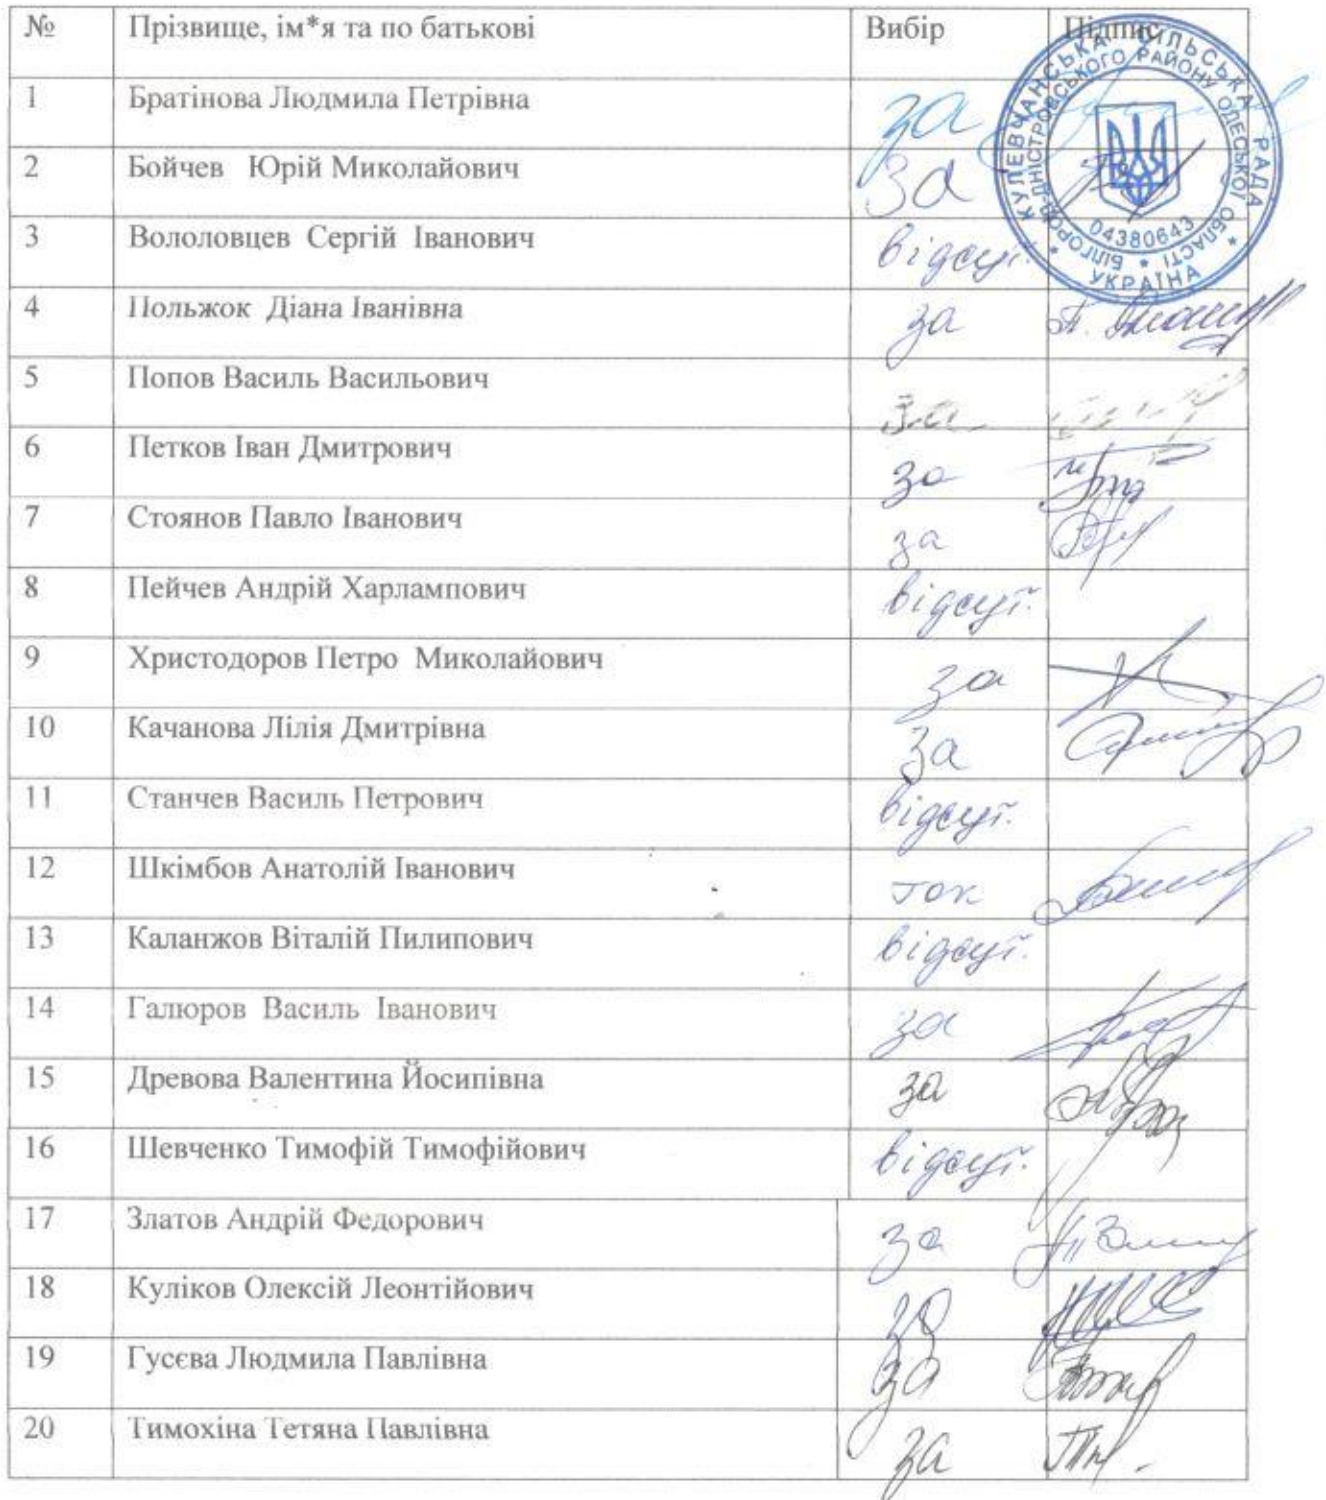 № Прізвище, ім*я та по батькові Вибір Підпис
1 Братінова Людмила Петрівна за
2 Бойчев Юрій Миколайович за
3 Вололовцев Сергій Іванович відсут.
4 Польжок Діана Іванівна за
5 Попов Василь Васильович за
6 Петков Іван Дмитрович за
7 Стоянов Павло Іванович за
8 Пейчев Андрій Харлампович відсут.
9 Христодоров Петро Миколайович за
10 Качанова Лілія Дмитрівна за
11 Станчев Василь Петрович відсут.
12 Шкімбов Анатолій Іванович так
13 Каланжов Віталій Пилипович відсут.
14 Галюров Василь Іванович за
15 Древова Валентина Йосипівна за
16 Шевченко Тимофій Тимофійович відсут.
17 Златов Андрій Федорович за
18 Куліков Олексій Леонтійович за
19 Гусєва Людмила Павлівна за
20 Тимохіна Тетяна Павлівна за
КУЛЕВЧАНСЬКА СІЛЬСЬКА РАДА
БІЛГОРОД-ДНІСТРОВСЬКОГО РАЙОНУ ОДЕСЬКОЇ ОБЛАСТІ
04380643
УКРАЇНА